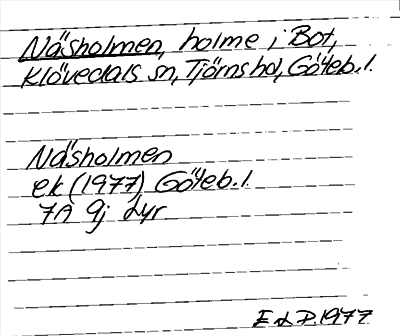 Näsholmen, holme i Bot,
Klövedals sn, Tjörns hd, Göteb. l.
Näsholmen
ek (1977) Göteb. l.
7A 9j Lyr
E d P. 1977